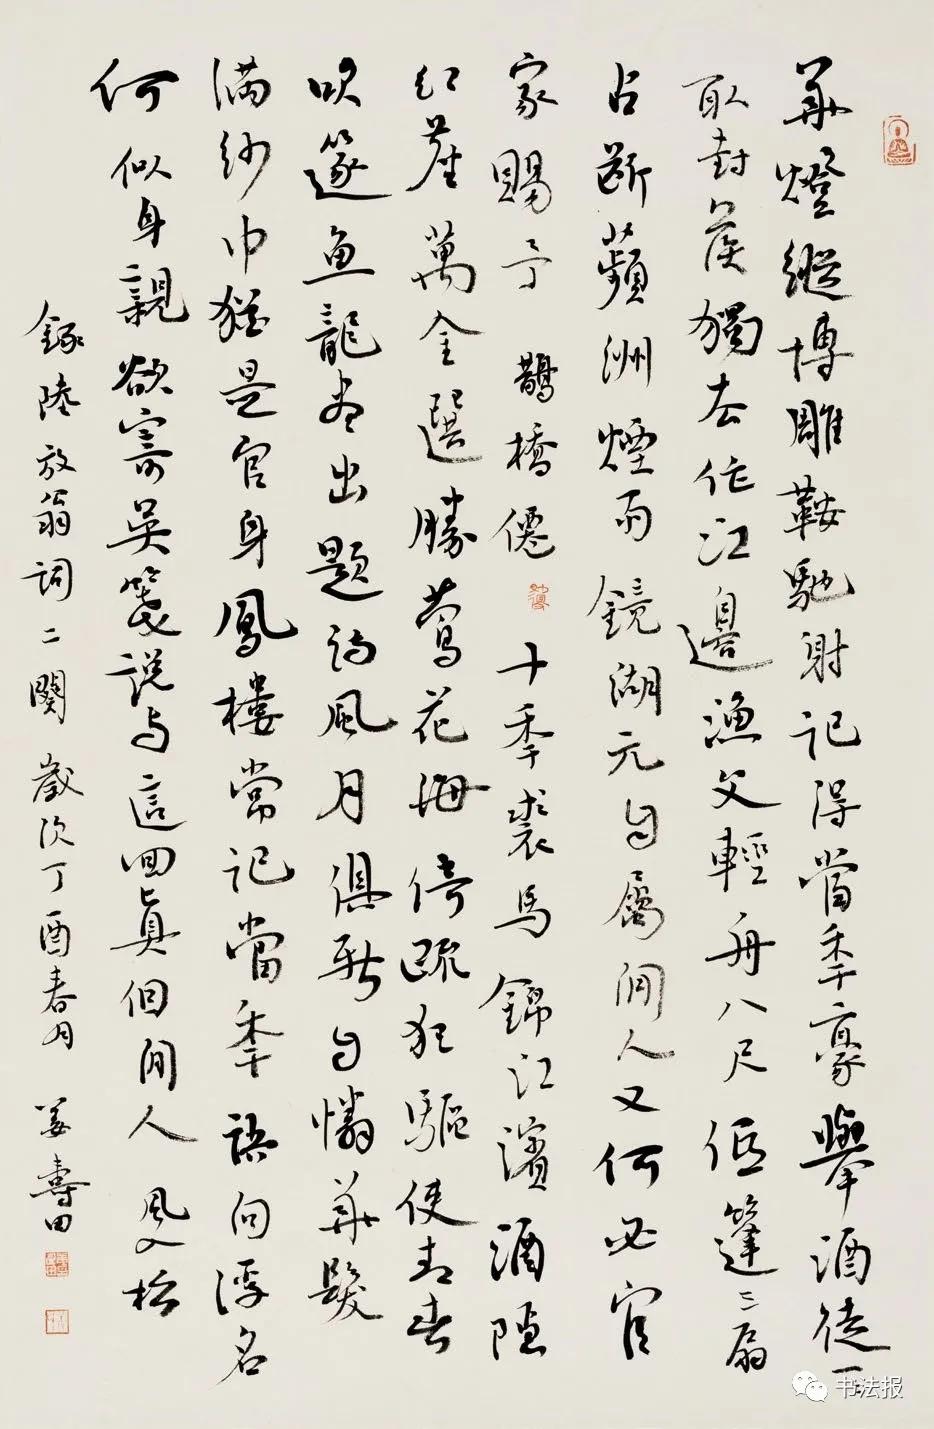 華燈縱博雕鞍馳射記得當季豪舉酒徒一
取封侯獨去作江邊漁父輕舟八尺低篷三扇
占斷蘋洲煙雨鏡湖元自屬閒人又何必官
家賜予 鵲橋僊 十季裘馬錦江濱酒隱
紅塵萬金選勝鶯花海倚疏狂驅使青春
吹篴魚龍盡出題詩風月俱新自憐華髮
滿紗巾猶是官身鳳樓常記當季語向浮名
何似身親欲寄吳箋說与這回真個閒人 風入松
錄陸放翁詞二闋歲次丁酉春月 姜壽田
书法报